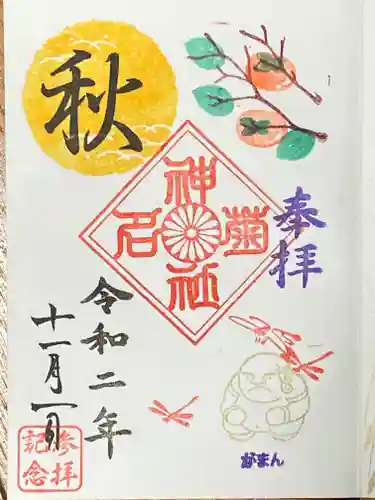 秋
奉拝
菊名神社
令和二年
十一月一日
参拝記念
がまん